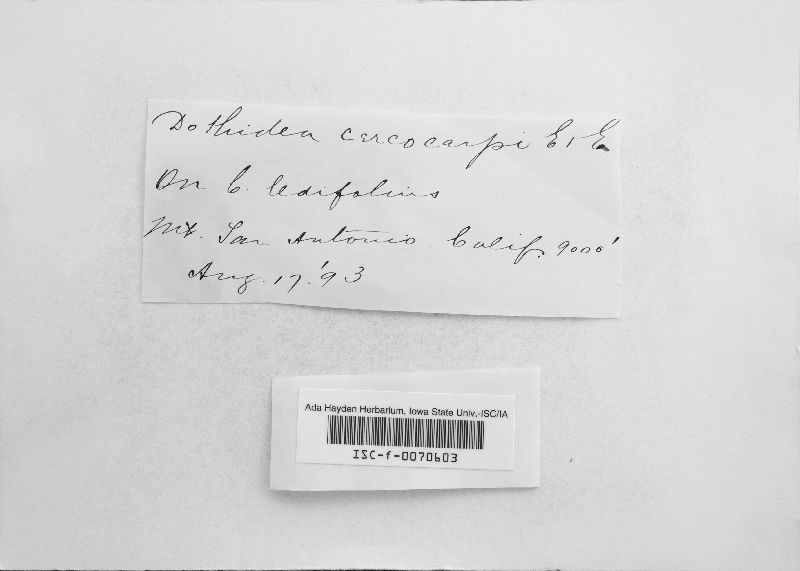 Dothidea cercocarpi E, E
On C. ledifolius
Mt. San Antonio. Calif. 9000'
Aug. 17. '93
Ada Hayden Herbarium, Iowa State Univ.-ISC/IA
ISC-f-0070603